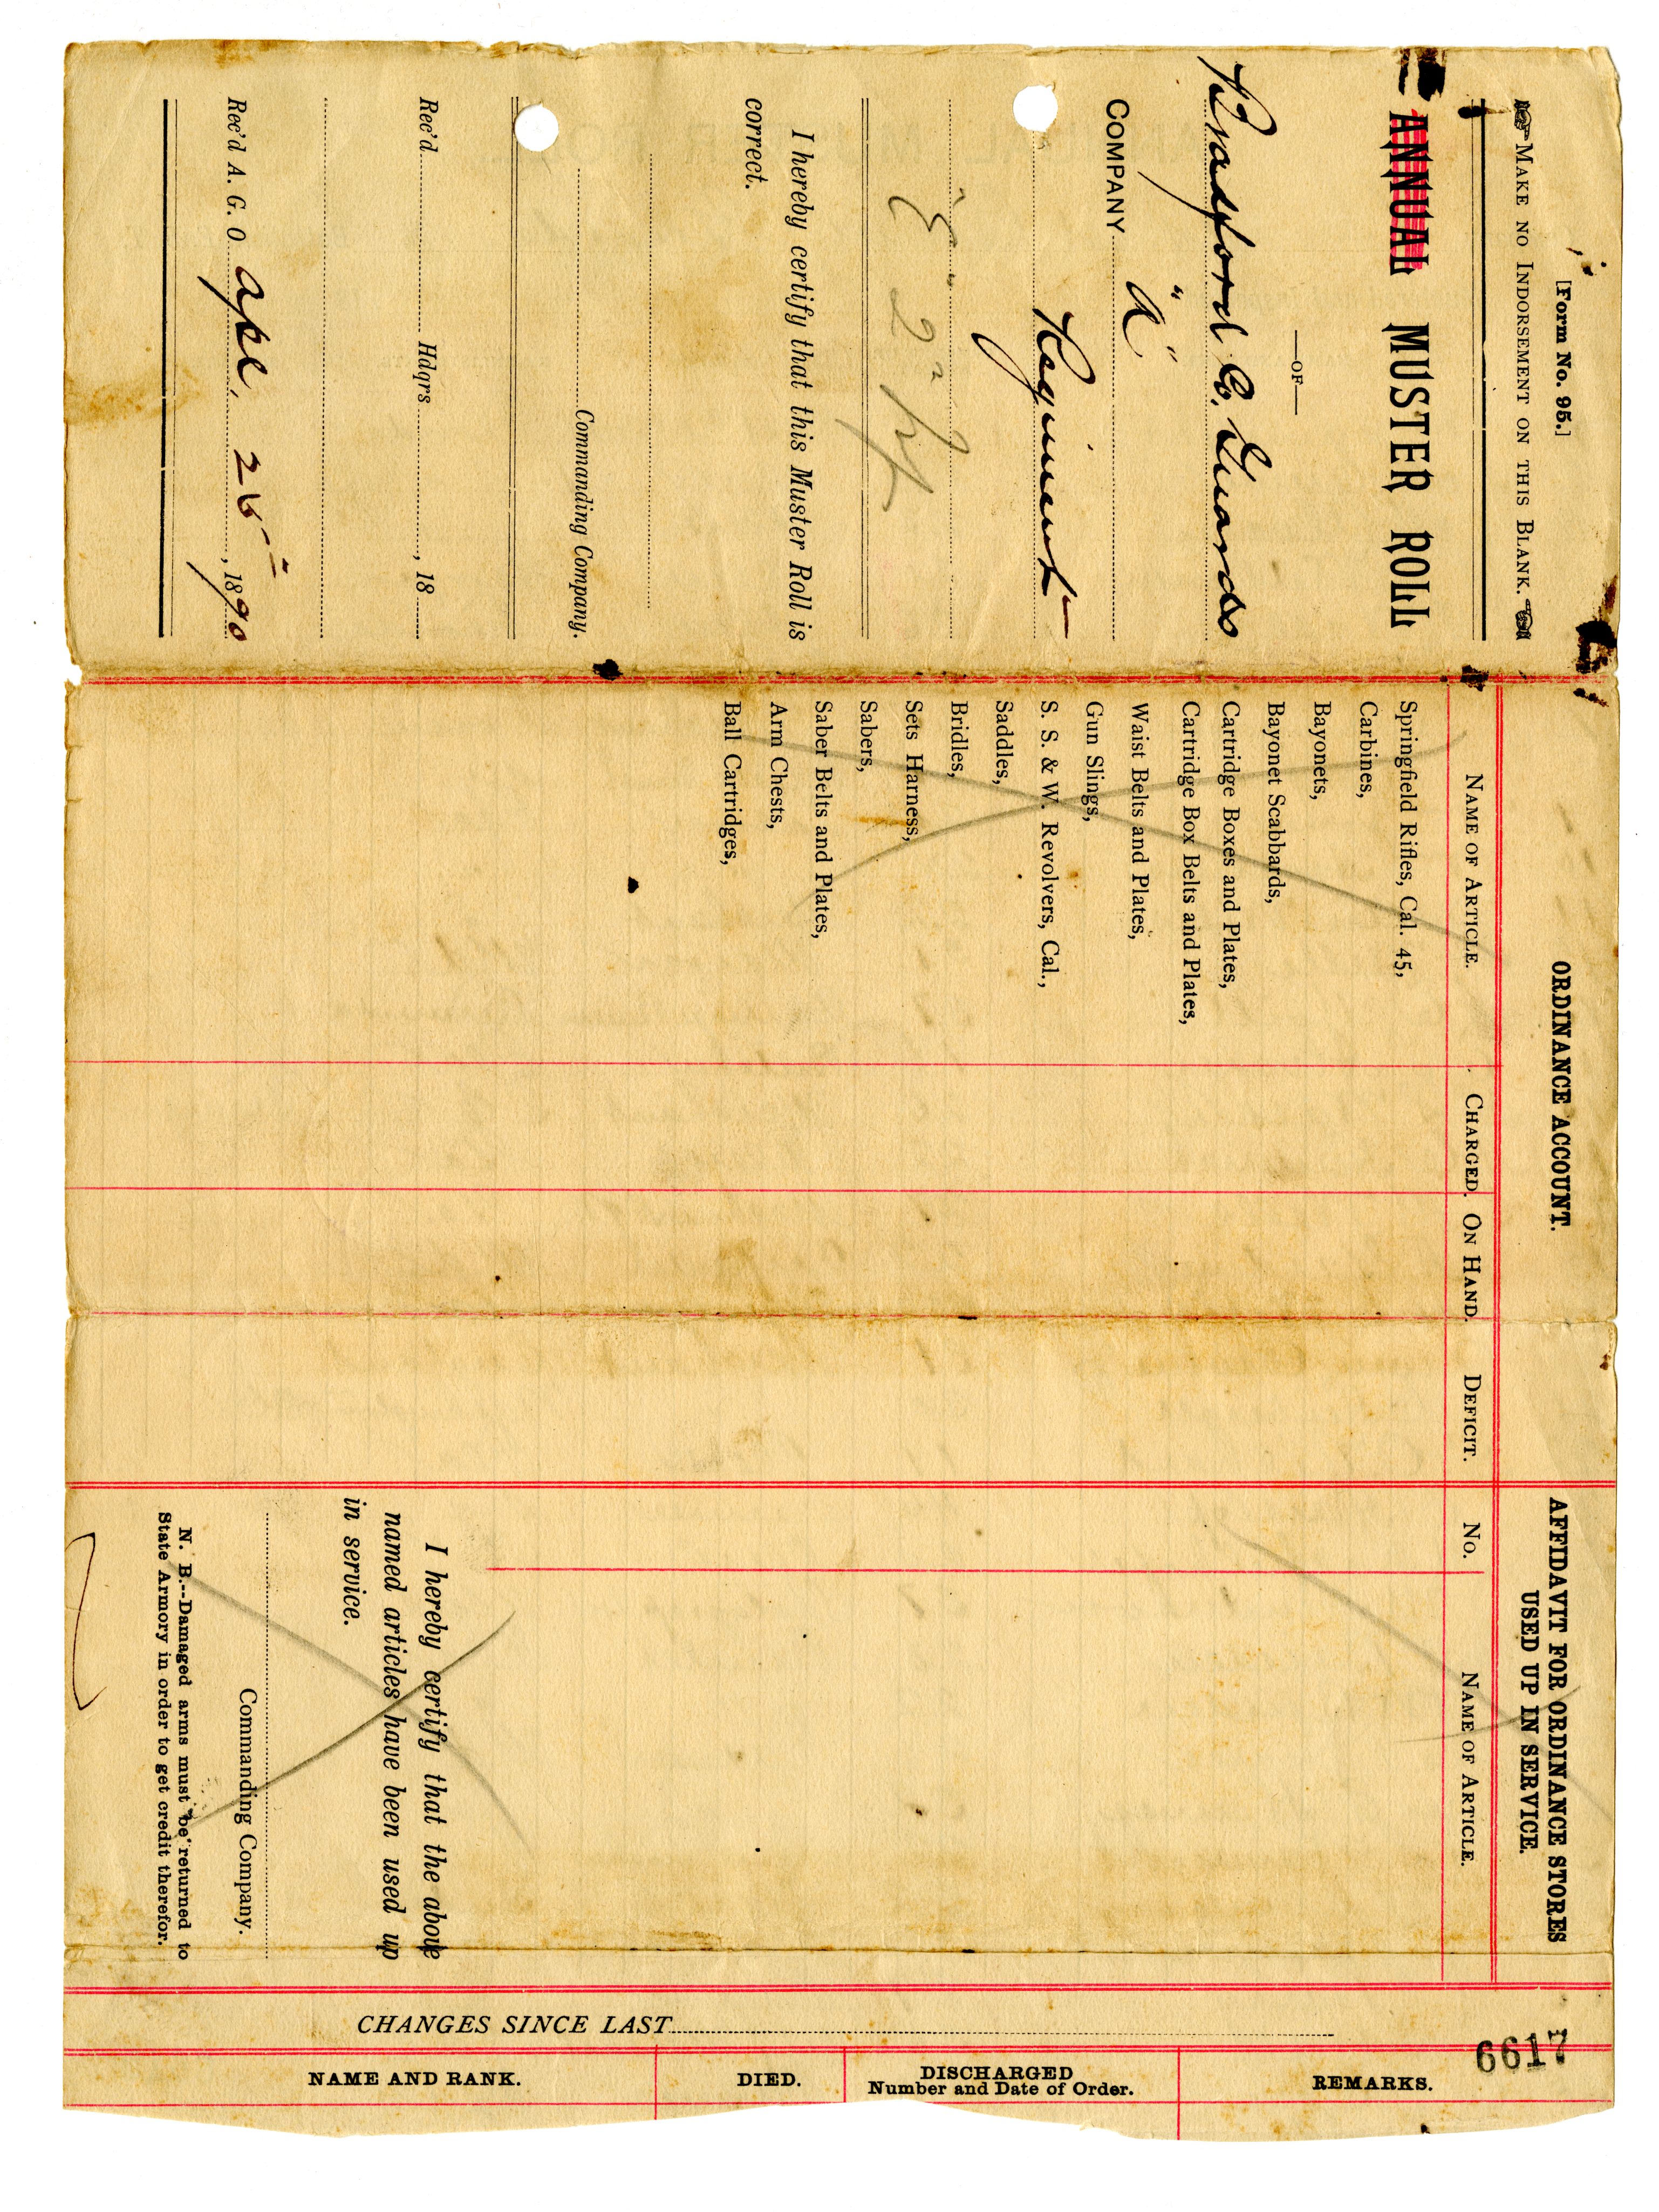 [Form No. 95.]
☞ MAKE NO INDORSEMENT ON THIS BLANK. ☜
ANNUAL MUSTER ROLL
—OF—
Bradford Co, Guards
COMPANY "A"
Regiment
"E" 2"
I hereby certify that this Muster Roll is
correct.
Commanding Company.
Rec'd Hdqrs , 18
Rec'd A. G. O. Apl. 25" , 1890
ORDINANCE ACCOUNT.
NAME OF ARTICLE. CHARGED. ON HAND. DEFICIT.
Springfield Rifles, Cal. 45,
Carbines,
Bayonets,
Bayonet Scabbards,
Cartridge Boxes and Plates,
Cartridge Box Belts and Plates,
Waist Belts and Plates,
Gun Slings,
S. S. & W. Revolvers, Cal.,
Saddles,
Bridles,
Sets Harness,
Sabers,
Saber Belts and Plates,
Arm Chests,
Ball Cartridges,
AFFIDAVIT FOR ORDINANCE STORES
USED UP IN SERVICE.
No. NAME OF ARTICLE.
I hereby certify that the above
named articles have been used up
in service.
Commanding Company.
N. B.--Damaged arms must be returned to
State Armory in order to get credit therefor.
6617
CHANGES SINCE LAST
NAME AND RANK. DIED. DISCHARGED REMARKS.
Number and Date of Order.